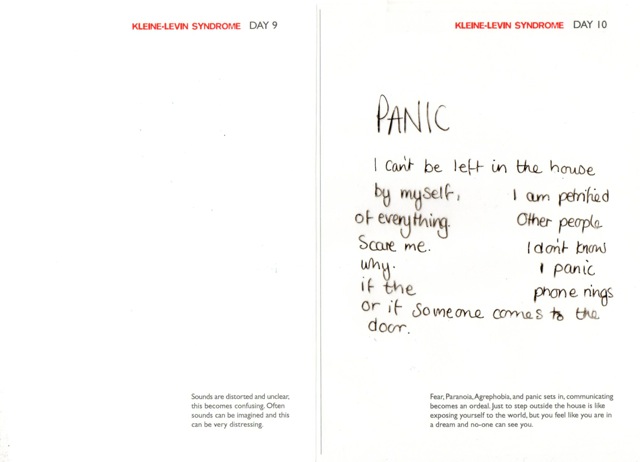 KLEINE-LEVIN SYNDROME DAY 9
Sounds are distorted and unclear,
this becomes confusing. Often
sounds can be imagined and this
can be very distressing.
KLEINE-LEVIN SYNDROME DAY 10
PANIC
I can't be left in the house
by myself, I am petrified
of everything. Other people
Scare me. I don't know
why. I panic
if the phone rings
or if someone comes to the
door.
Fear, Paranoia, Agrephobia, and panic sets in, communicating
becomes an ordeal. Just to step outside the house is like
exposing yourself to the world, but you feel like you are in
a dream and no-one can see you.